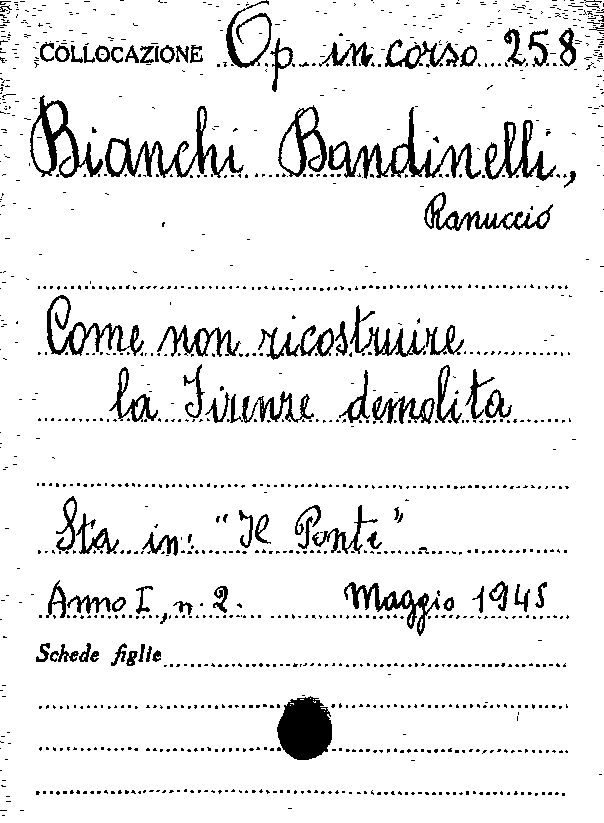 COLLOCAZIONE Op in corso 258
Bianchi Bandinelli,
Ranuccio
Come non ricostruire
la Firenze demolita
Sta in: "Il Ponte".
Anno I, n. 2. Maggio 1945
Schede figlie